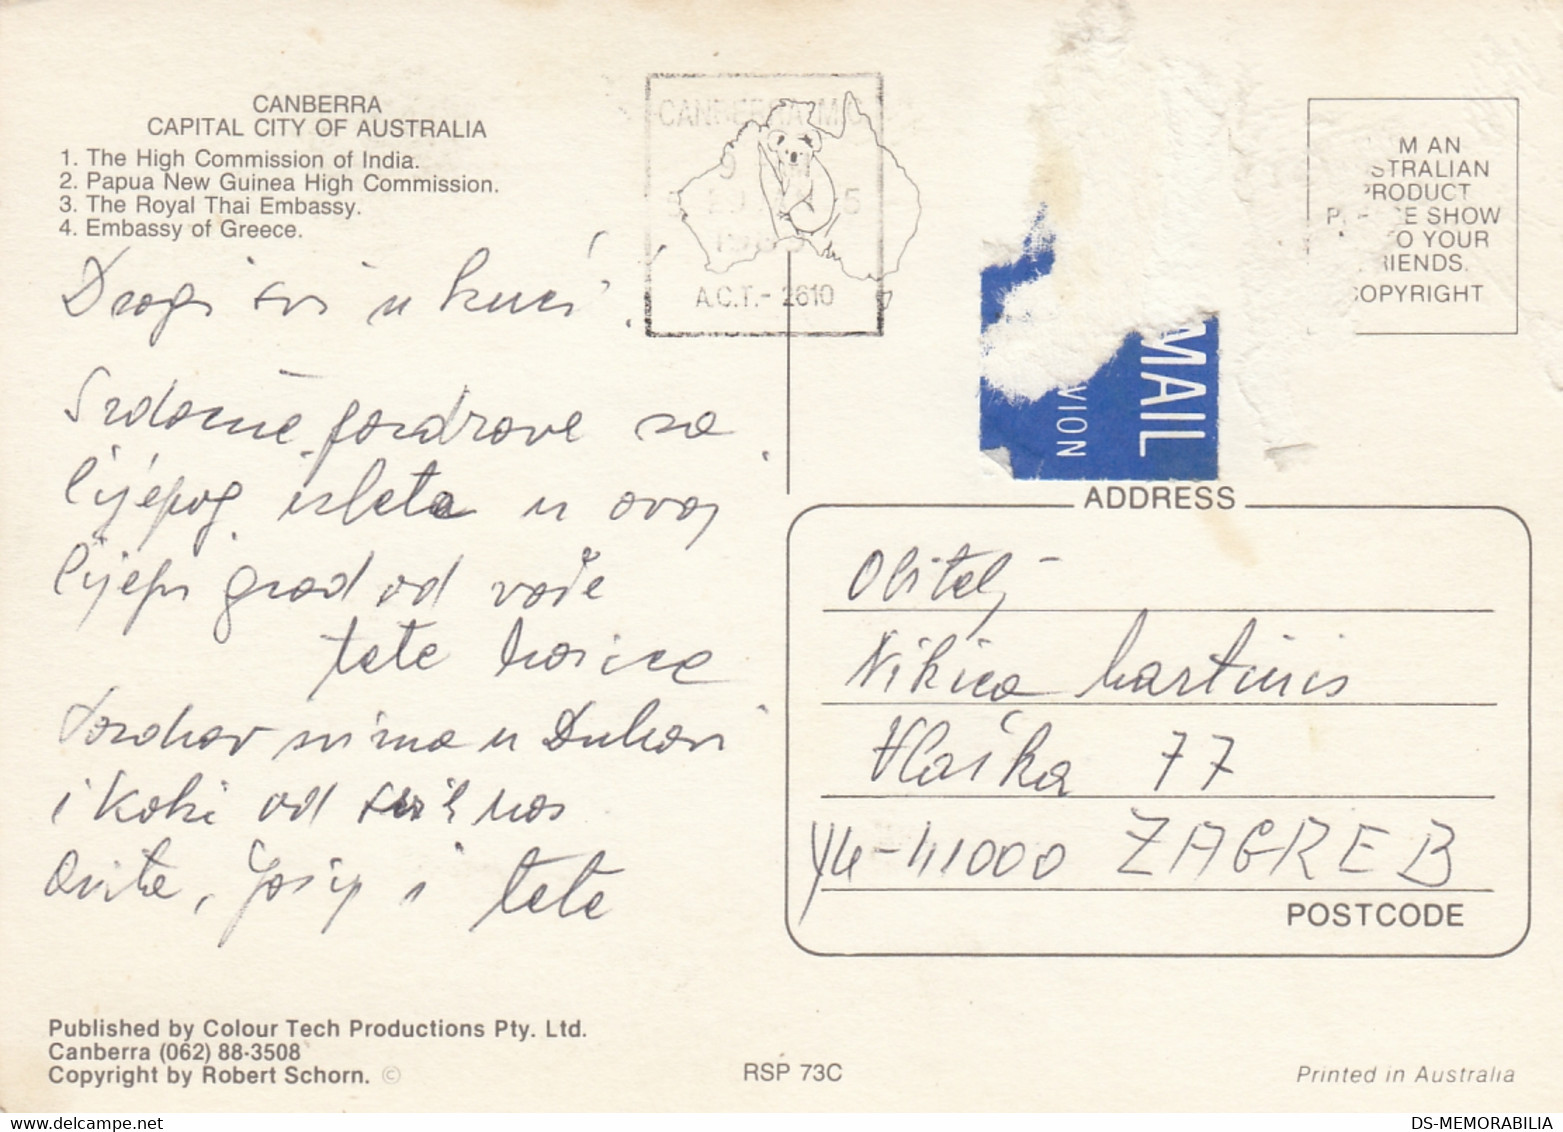 CANBERRA
CAPITAL CITY OF AUSTRALIA
1. The High Commission of India.
2. Papua New Guinea High Commission.
3. The Royal Thai Embassy.
4. Embassy of Greece.
CANBERRA M.C
A.C.T.- 2610
M AN
STRALIAN
PRODUCT
SHOW
O YOUR
IENDS.
COPYRIGHT
MAIL
VION
Dragi svi u kući!
Srdačne pozdrove sa
lijepog izleta u ovoj
lijepi grad od vaše
tete
svima u Đukovi
i Koki od svih nas
Anite, Josip i tete
ADDRESS
Obitelj
Nikica Martinis
Vlaška 77
YU-41000 ZAGREB
POSTCODE
Published by Colour Tech Productions Pty. Ltd.
Canberra (062) 88-3508
Copyright by Robert Schorn. ©
RSP 73C
Printed in Australia
DS-MEMORABILIA